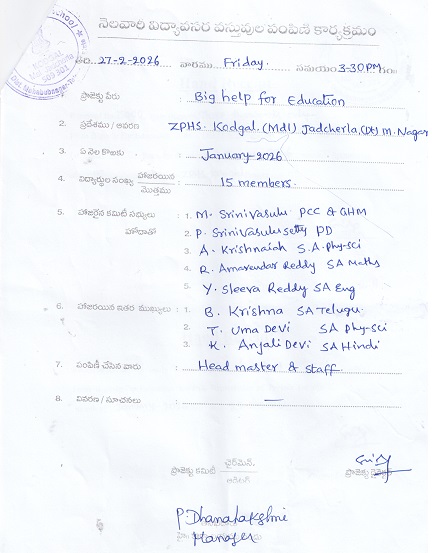 నెలవారీ విద్యావసర వస్తువుల పంపిణీ కార్యక్రమం
తేది. 27-2-2026 వారము Friday. సమయం 3-30PM గం॥
1. ప్రాజెక్టు పేరు : Big help for Education
2. ప్రదేశము / ఆవరణ ZPHS. Kodgal. (Mdl) Jadcherla, (Dt) M. Nagar
3. ఏ నెల కొఱకు : January-2026
4. విద్యార్థుల సంఖ్య హాజరయిన / మొత్తము : 15 members.
5. హాజరైన కమిటీ సభ్యులు : 1. M. Srinivasulu PCC & GHM
హోదాతో 2. P. Srinivasulusetty PD
3. A. Krishnaiah S.A. Phy-Sci
4. R. Amarendar Reddy SA Maths
5. Y. Sleeva Reddy SA Eng
6. హాజరయిన ఇతర ముఖ్యులు : 1. B. Krishna SA Telugu.
2. T. Uma Devi SA Phy-Sci
3. K. Anjali Devi SA Hindi
7. పంపిణీ చేసిన వారు : Head master & Staff.
8. వివరణ / సూచనలు : —
ప్రాజెక్టు కమిటీ ఛైర్మెన్.
ప్రాజెక్టు
P Dhanalakshmi
Manager